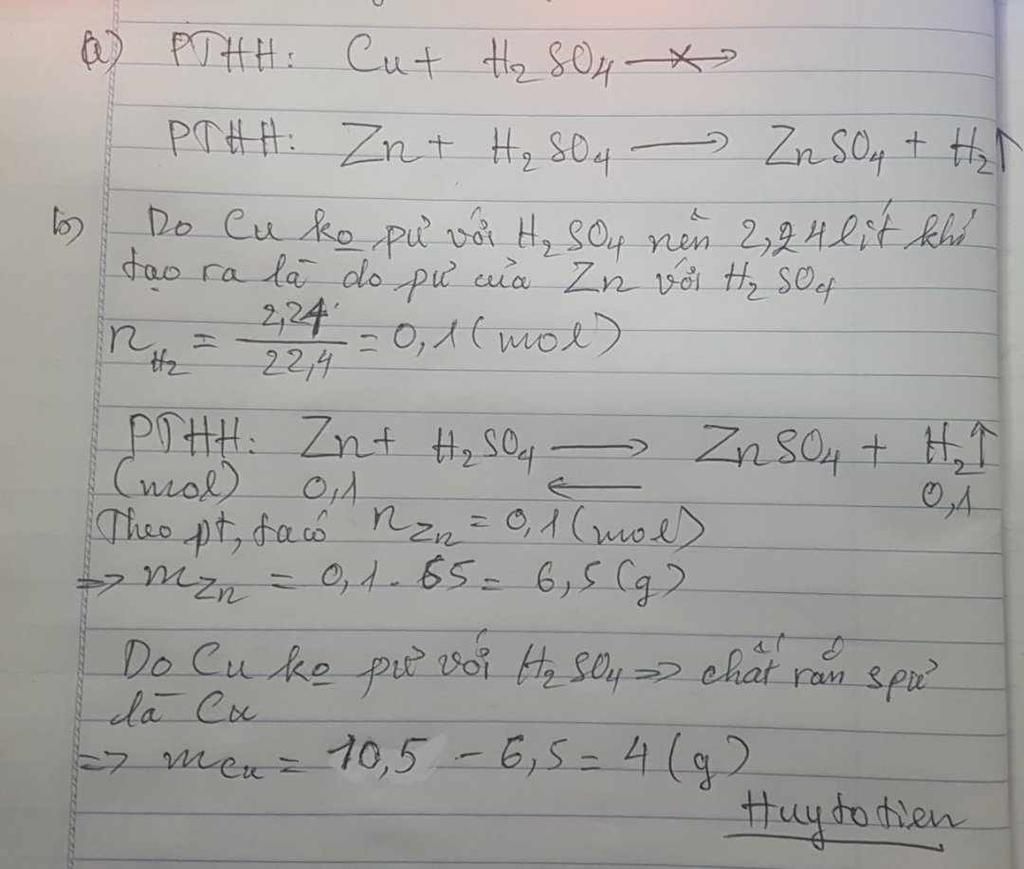 a) PTHH: Cu + H2SO4 -x->
PTHH: Zn + H2SO4 → ZnSO4 + H2↑
b) Do Cu ko pứ với H2SO4 nên 2,24 lít khí
tạo ra là do pứ của Zn với H2SO4
nH2 = 2,24/22,4 = 0,1 (mol)
PTHH: Zn + H2SO4 → ZnSO4 + H2↑
(mol) 0,1 ← 0,1
Theo pt, ta có nZn = 0,1 (mol)
=> mZn = 0,1 . 65 = 6,5 (g)
Do Cu ko pứ với H2SO4 => chất rắn spứ
là Cu
=> mCu = 10,5 - 6,5 = 4 (g)
Huytotien